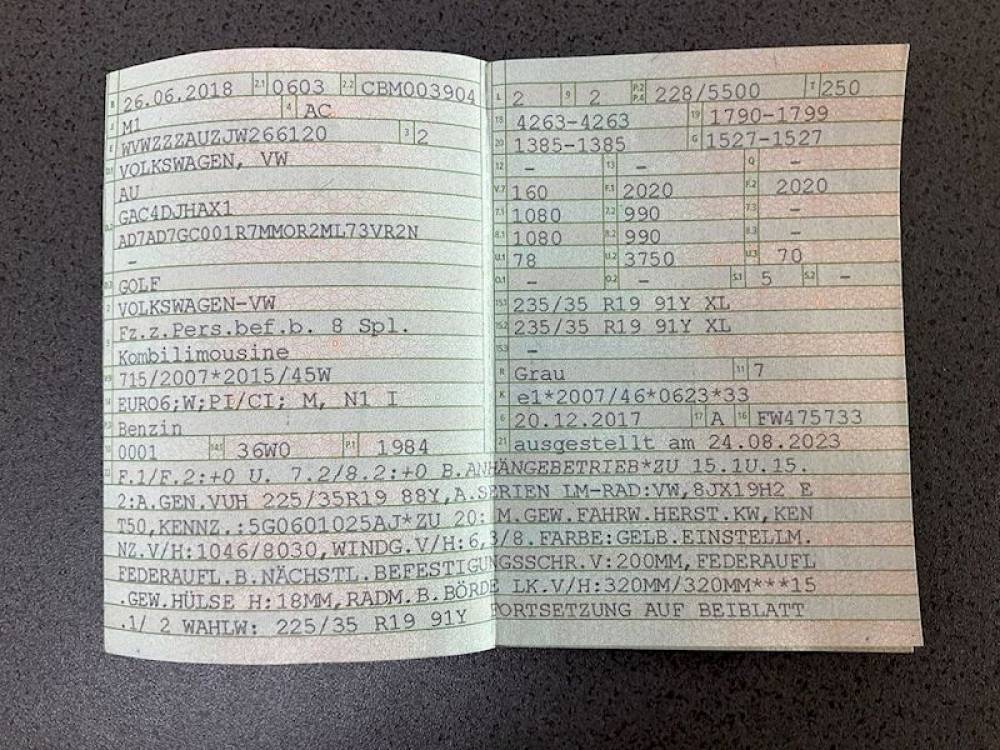 B 26.06.2018 2.1 0603 2.2 CBM003904
J M1 4 AC
E WVWZZZAUZJW266120 3 2
D.1 VOLKSWAGEN, VW
AU
GAC4DJHAX1
D.2 AD7AD7GC001R7MMOR2ML73VR2N
–
D.3 GOLF
2 VOLKSWAGEN-VW
5 Fz.z.Pers.bef.b. 8 Spl.
Kombilimousine
V.9 715/2007*2015/45W
14 EURO6;W;PI/CI; M, N1 I
P.3 Benzin
10 0001 14.1 36W0 P.1 1984
L 2 9 2 P.2 P.4 228/5500 T 250
18 4263-4263 19 1790-1799
20 1385-1385 G 1527-1527
12 – 13 – Q –
V.7 160 F.1 2020 F.2 2020
7.1 1080 7.2 990 7.3 –
8.1 1080 8.2 990 8.3 –
U.1 78 U.2 3750 U.3 70
O.1 – O.2 – S.1 5 S.2 –
15.1 235/35 R19 91Y XL
15.2 235/35 R19 91Y XL
15.3 –
R Grau 11 7
K e1*2007/46*0623*33
6 20.12.2017 17 A 16 FW475733
21 ausgestellt am 24.08.2023
22 F.1/F.2:+0 U. 7.2/8.2:+0 B.ANHÄNGEBETRIEB*ZU 15.1U.15.
2:A.GEN.VUH 225/35R19 88Y,A.SERIEN LM-RAD:VW,8JX19H2 E
T50,KENNZ.:5G0601025AJ*ZU 20: M.GEW.FAHRW.HERST.KW,KEN
NZ.V/H:1046/8030,WINDG.V/H:6,3/8.FARBE:GELB.EINSTELLM.
FEDERAUFL.B.NÄCHSTL.BEFESTIGUNGSSCHR.V:200MM,FEDERAUFL
.GEW.HÜLSE H:18MM,RADM.B.BÖRDE LK.V/H:320MM/320MM***15
.1/ 2 WAHLW: 225/35 R19 91Y FORTSETZUNG AUF BEIBLATT